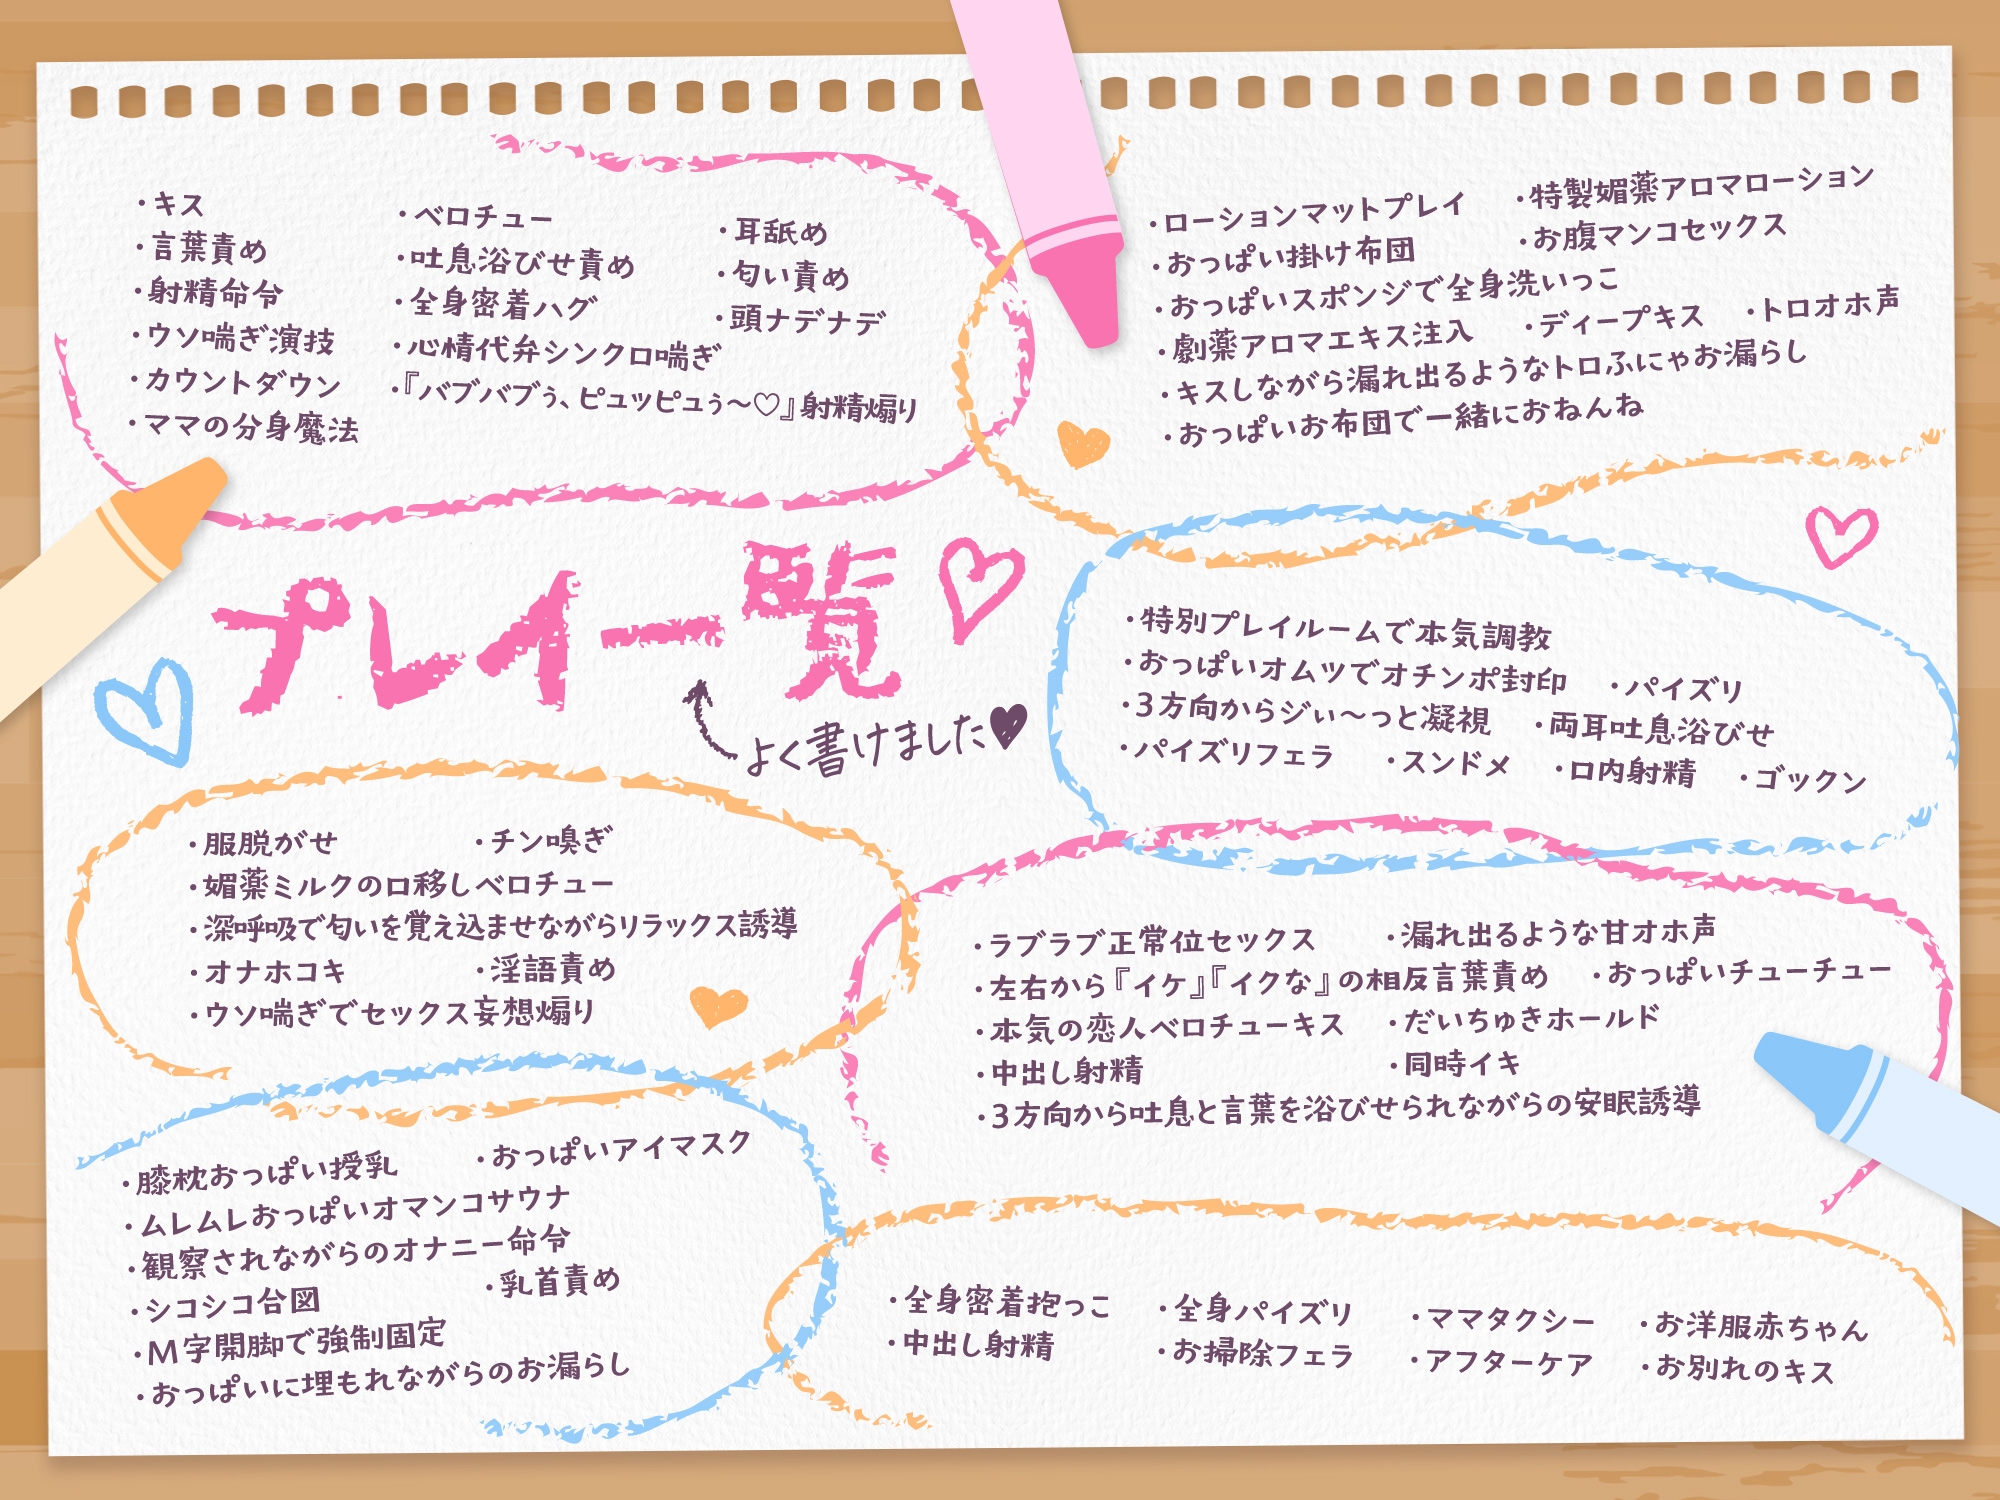 ・キス
・言葉責め
・射精命令
・ウソ喘ぎ演技
・カウントダウン
・ママの分身魔法
・ベロチュー
・吐息浴びせ責め
・全身密着ハグ
・心情代弁シンクロ喘ぎ
・『バブバブぅ、ピュッピュぅ〜♡』射精煽り
・耳舐め
・匂い責め
・頭ナデナデ
・ローションマットプレイ
・特製媚薬アロマローション
・おっぱい掛け布団
・お腹マンコセックス
・おっぱいスポンジで全身洗いっこ
・劇薬アロマエキス注入
・ディープキス
・トロオホ声
・キスしながら漏れ出るようなトロふにゃお漏らし
・おっぱいお布団で一緒におねんね
プレイ一覧♡
よく書けました♥
・特別プレイルームで本気調教
・おっぱいオムツでオチンポ封印
・パイズリ
・3方向からジぃ〜っと凝視
・両耳吐息浴びせ
・パイズリフェラ
・スンドメ
・口内射精
・ゴックン
・服脱がせ
・チン嗅ぎ
・媚薬ミルクの口移しベロチュー
・深呼吸で匂いを覚え込ませながらリラックス誘導
・オナホコキ
・淫語責め
・ウソ喘ぎでセックス妄想煽り
・ラブラブ正常位セックス
・漏れ出るような甘オホ声
・左右から『イケ』『イクな』の相反言葉責め
・おっぱいチューチュー
・本気の恋人ベロチューキス
・だいちゅきホールド
・中出し射精
・同時イキ
・3方向から吐息と言葉を浴びせられながらの安眠誘導
・膝枕おっぱい授乳
・おっぱいアイマスク
・ムレムレおっぱいオマンコサウナ
・観察されながらのオナニー命令
・シコシコ合図
・乳首責め
・M字開脚で強制固定
・おっぱいに埋もれながらのお漏らし
・全身密着抱っこ
・全身パイズリ
・ママタクシー
・お洋服赤ちゃん
・中出し射精
・お掃除フェラ
・アフターケア
・お別れのキス